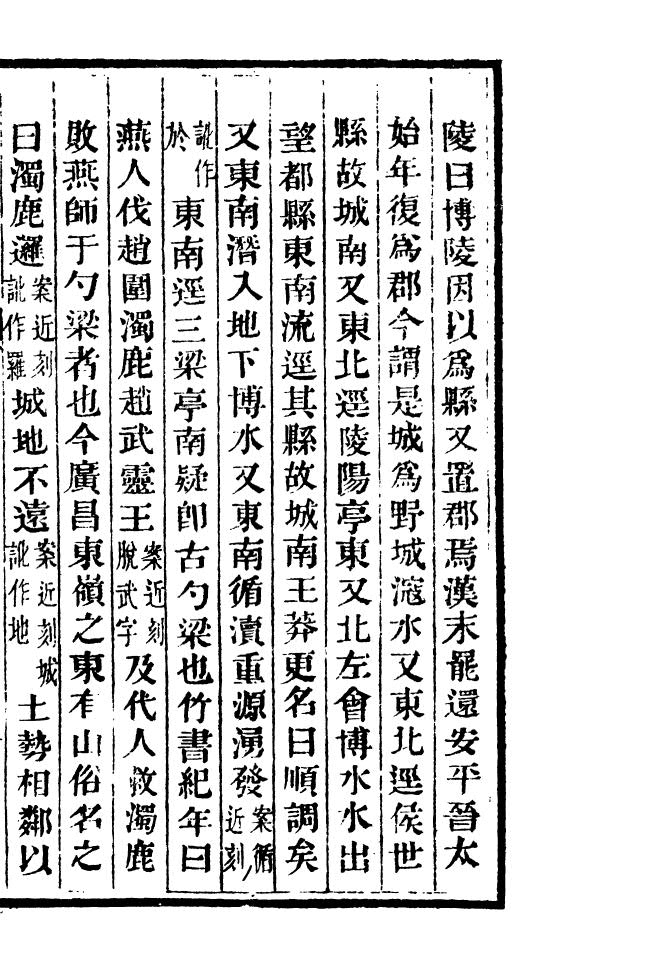 陵曰博陵因以爲縣又置郡焉漢末罷還安平晉太
始年復爲郡今謂是城爲野城㴲水又東北逕侯世
縣故城南又東北逕陵陽亭東又北左會博水水出
望都縣東南流逕其縣故城南王莽更名曰順調矣
又東南潛入地下博水又東南循瀆重源湧發案循近刻
訛作於東南逕三梁亭南疑卽古勺梁也竹書紀年曰
燕人伐趙圍濁鹿趙武靈王案近刻脫武字及代人救濁鹿
敗燕師于勺梁者也今廣昌東嶺之東有山俗名之
曰濁鹿邏案近刻訛作羅城地不遠案近刻城訛作地土勢相鄰以